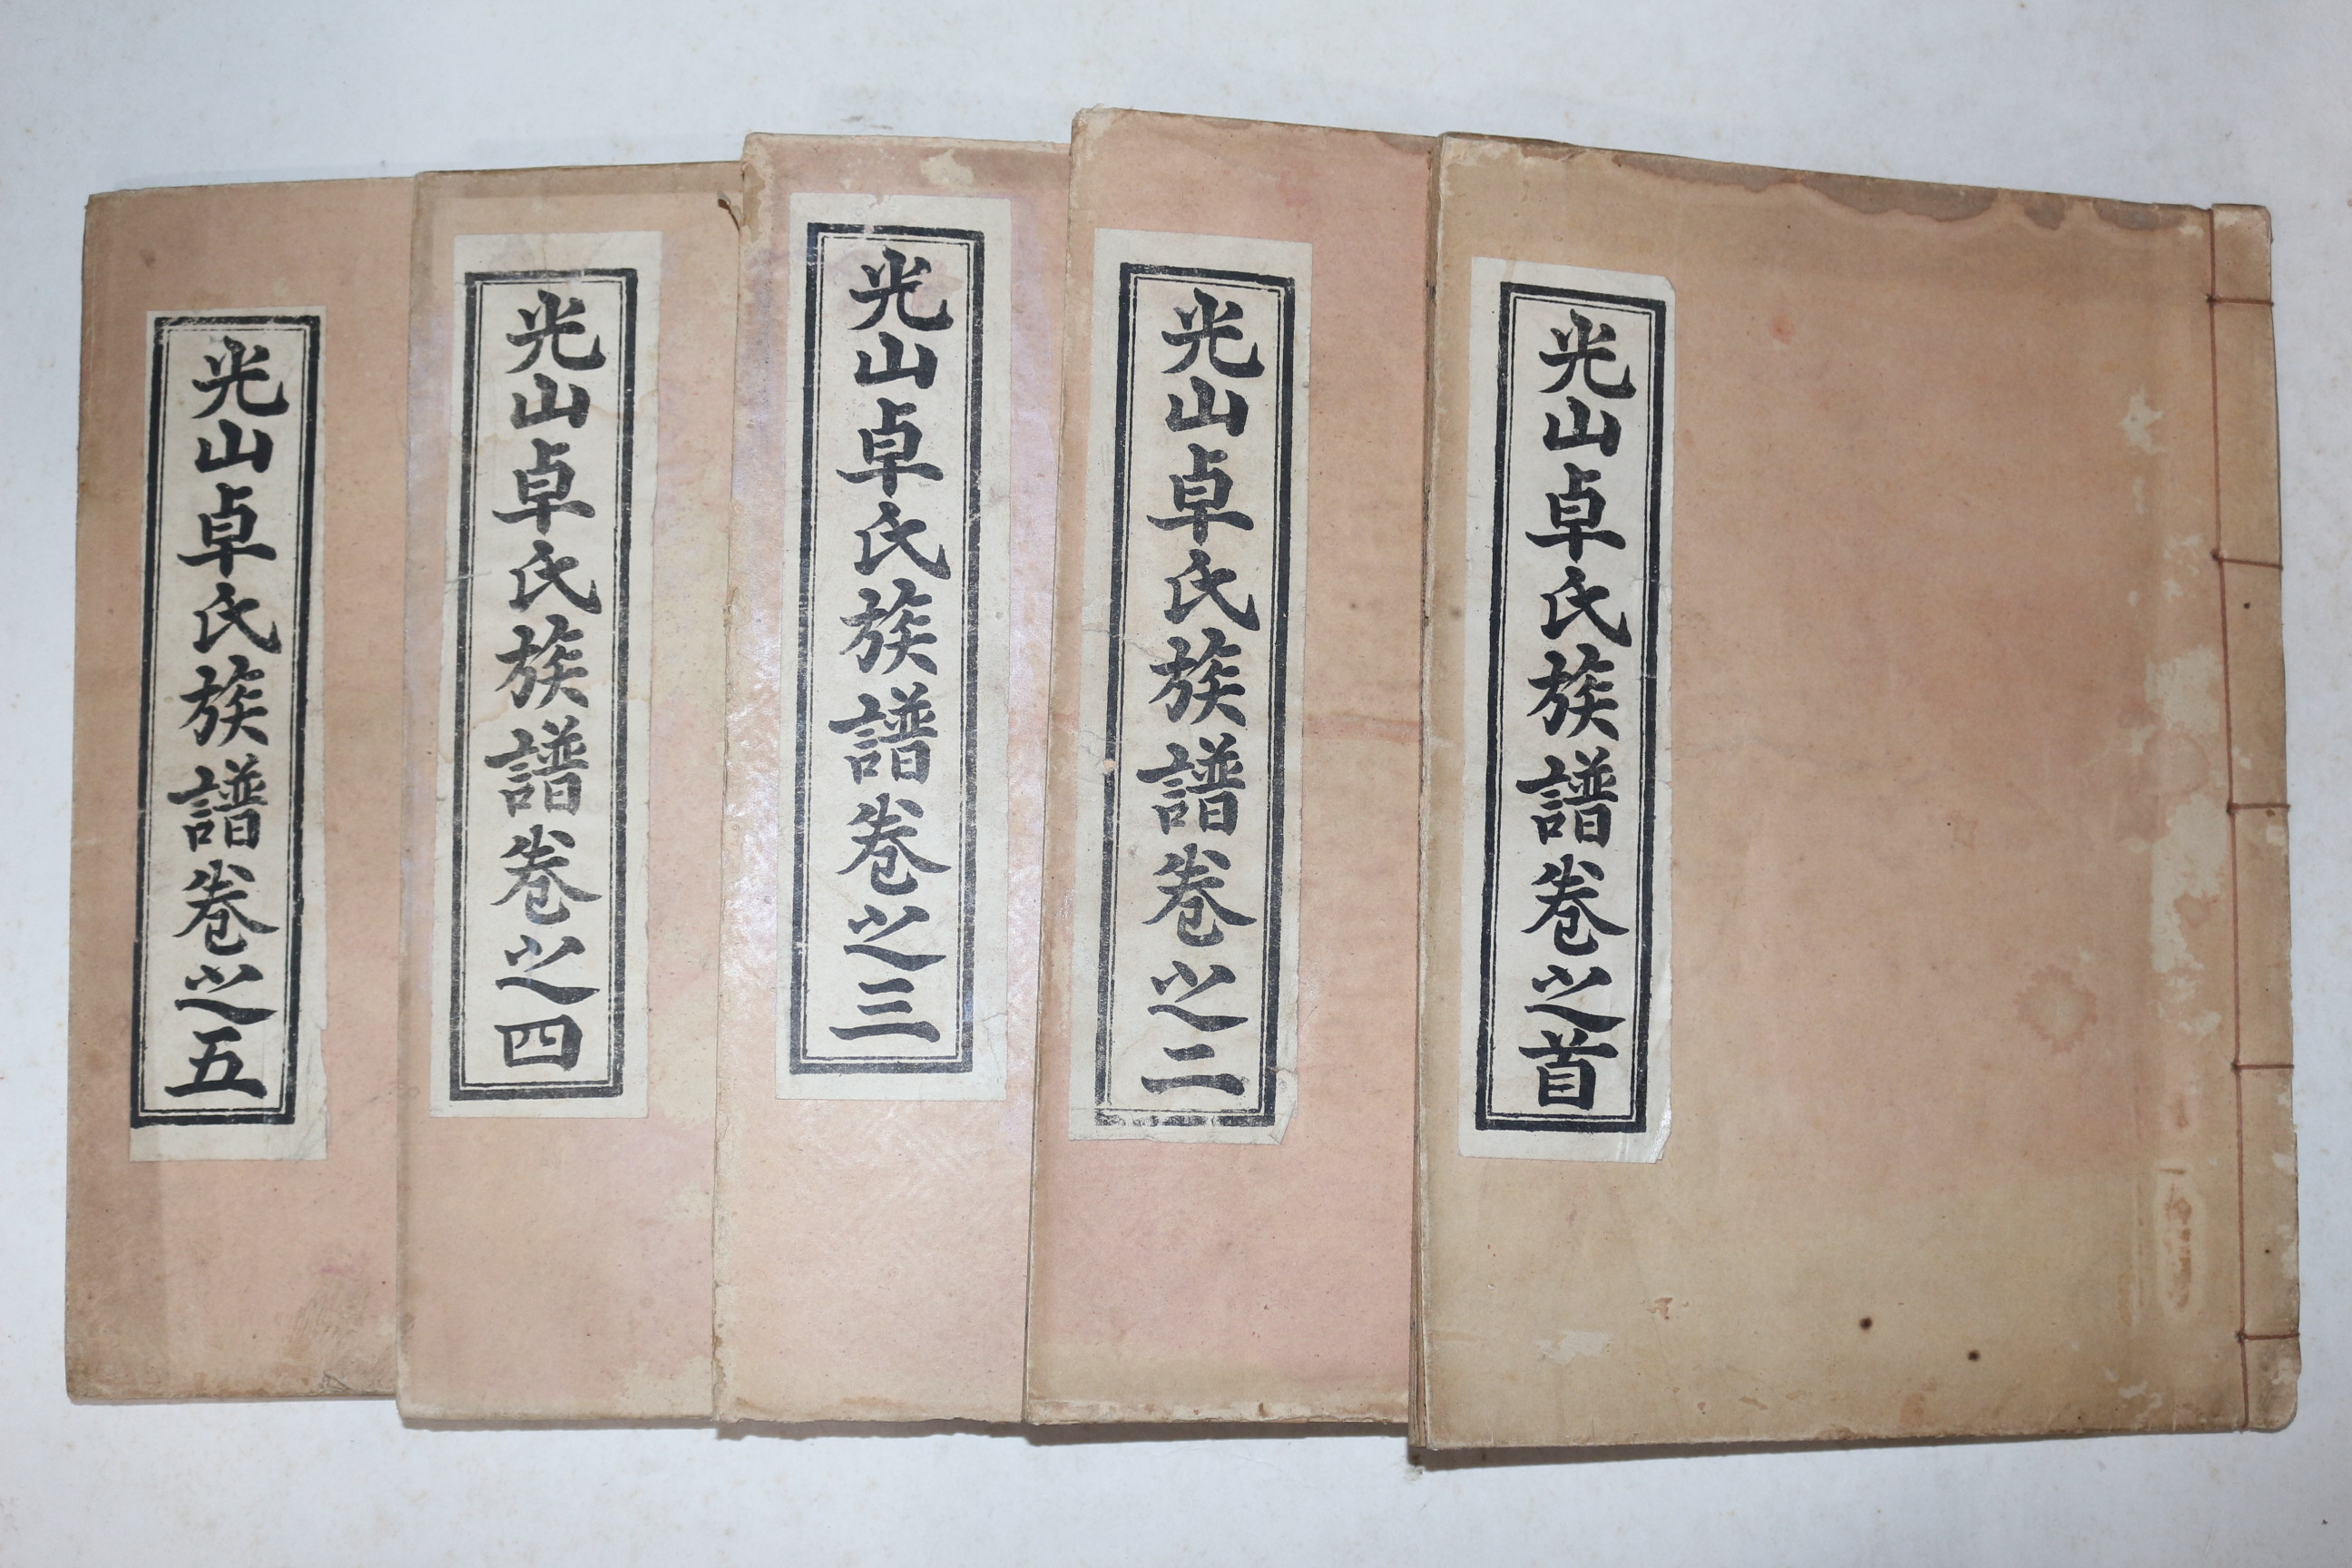 光山卓氏族譜卷之首
光山卓氏族譜卷之二
光山卓氏族譜卷之三
光山卓氏族譜卷之四
光山卓氏族譜卷之五